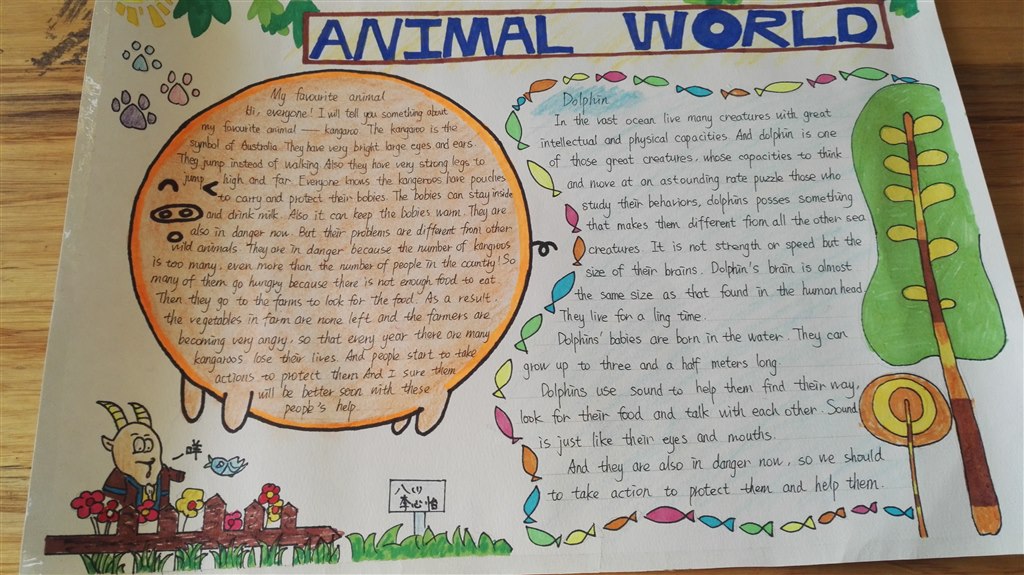 ANIMAL WORLD
My favourite animal
Hi, everyone! I will tell you something about
my favourite animal — kangaroo. The kangaroo is the
symbol of Australia. They have very bright large eyes and ears.
They jump instead of walking. Also they have very strong legs to
jump high and far. Everyone knows the kangeroos have pouches
to carry and protect their bobies. The bobies can stay inside
and drink milk. Also it can keep the bobies warm. They are
also in danger now. But their problems are different from other
wild animals. They are in danger because the number of kangroos
is too many, even more than the number of people in the country! So
many of them go hungry because there is not enough food to eat.
Then they go to the farms to look for the food. As a result,
the vegetables in farm are none left and the farmers are
becoming very angry, so that every year there are many
kangaroos lose their lives. And people start to take
actions to protect them. And I sure them
will be better soon with these
people's help.
Dolphin
In the vast ocean live many creatures with great
intellectual and physical capacities. And dolphin is one
of those great creatures, whose capacities to think
and move at an astounding rate puzzle those who
study their behaviors, dolphins posses something
that makes them different from all the other sea
creatures. It is not strength or speed but the
size of their brains. Dolphin's brain is almost
the same size as that found in the human head.
They live for a ling time.
Dolphins' babies are born in the water. They can
grow up to three and a half meters long.
Dolphins use sound to help them find their way,
look for their food and talk with each other. Sound
is just like their eyes and mouths.
And they are also in danger now, so we should
to take action to protect them and help them.
咩
八(1)
李心怡